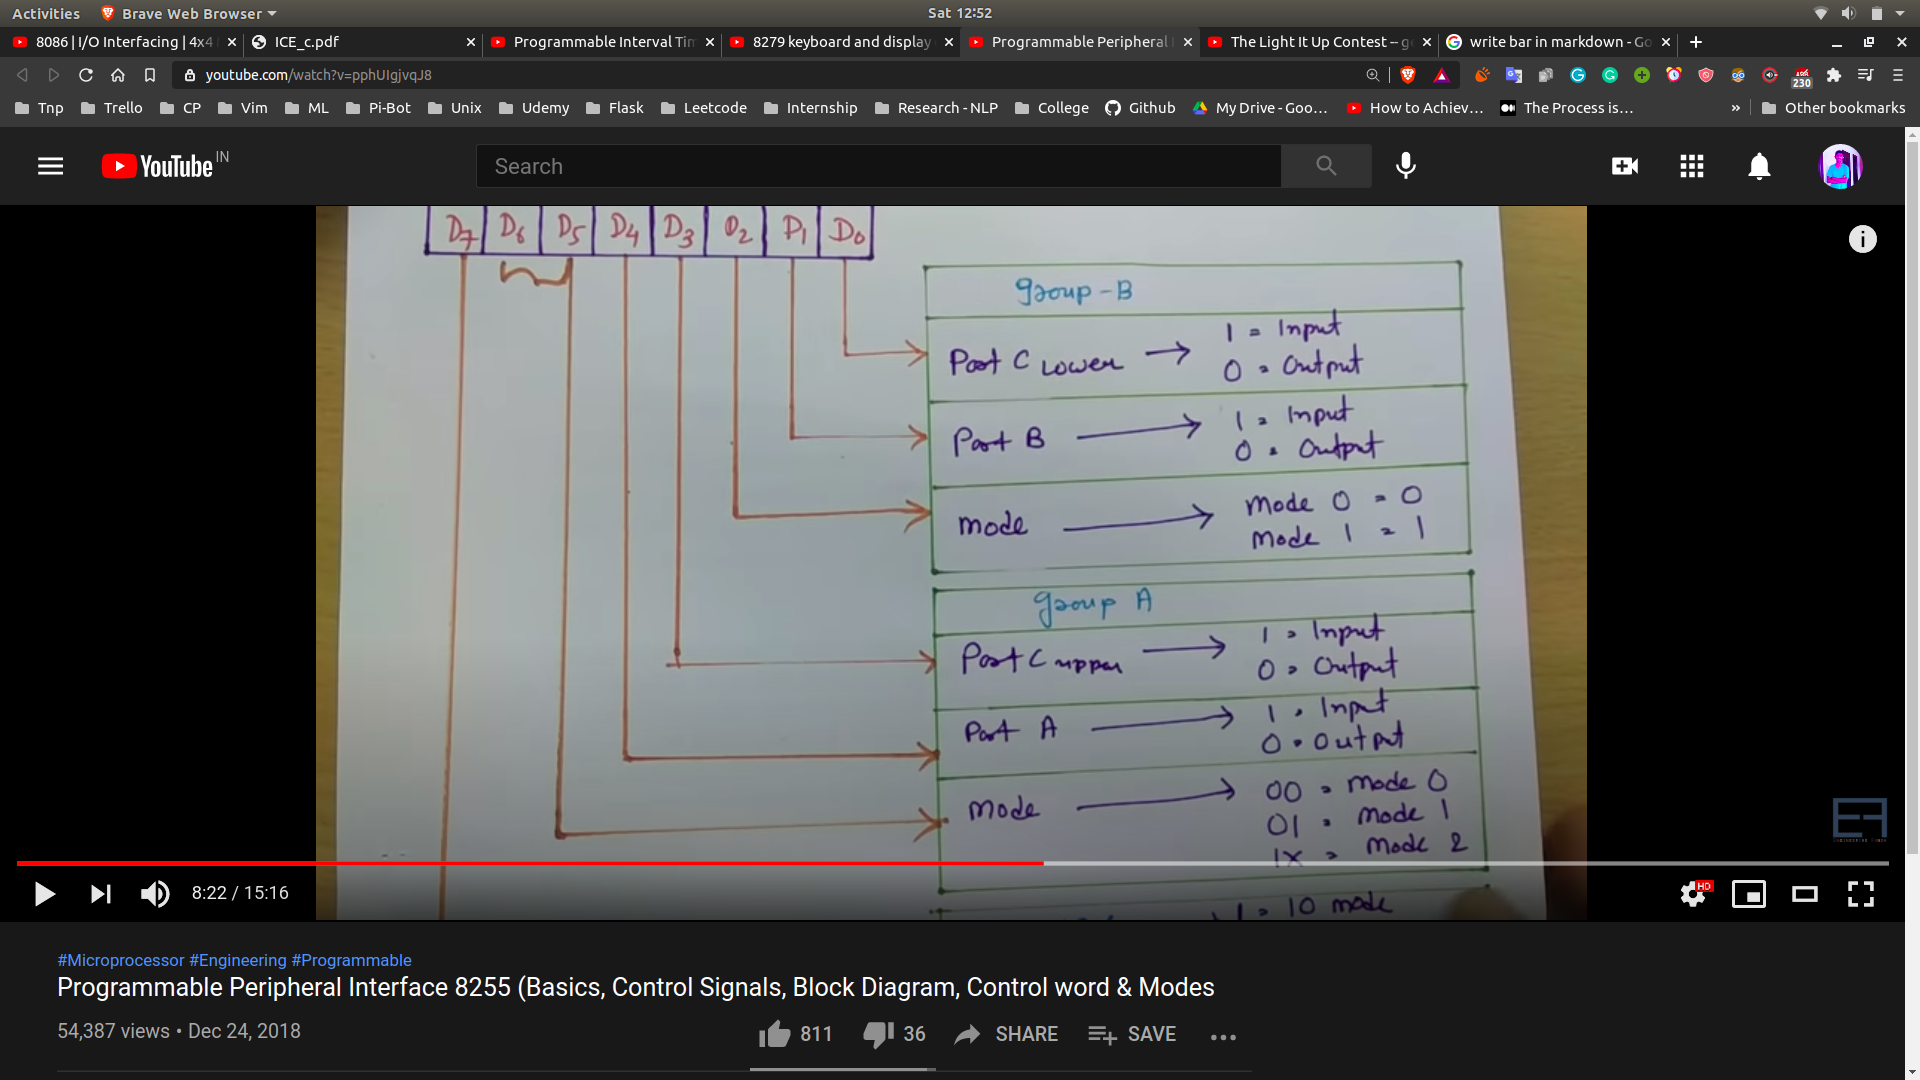 Activities Brave Web Browser Sat 12:52
8086 | I/O Interfacing | 4x4 ICE_c.pdf Programmable Interval Tim 8279 keyboard and display Programmable Peripheral The Light It Up Contest -- ge write bar in markdown - Go
youtube.com/watch?v=pphUIgjvqJ8 230
Tnp Trello CP Vim ML Pi-Bot Unix Udemy Flask Leetcode Internship Research - NLP College Github My Drive - Goo... How to Achiev... The Process is... » Other bookmarks
YouTube IN Search
D7 D6 D5 D4 D3 D2 D1 D0
group-B
Port C Lower → 1 = Input
0 = Output
Port B → 1 = Input
0 = Output
mode → Mode 0 = 0
Mode 1 = 1
group A
Port C upper → 1 = Input
0 = Output
Port A → 1 = Input
0 = Output
Mode → 00 = Mode 0
01 = Mode 1
1X = Mode 2
1 = IO mode
EF
8:22 / 15:16 HD
#Microprocessor #Engineering #Programmable
Programmable Peripheral Interface 8255 (Basics, Control Signals, Block Diagram, Control word & Modes
54,387 views • Dec 24, 2018 811 36 SHARE SAVE ...